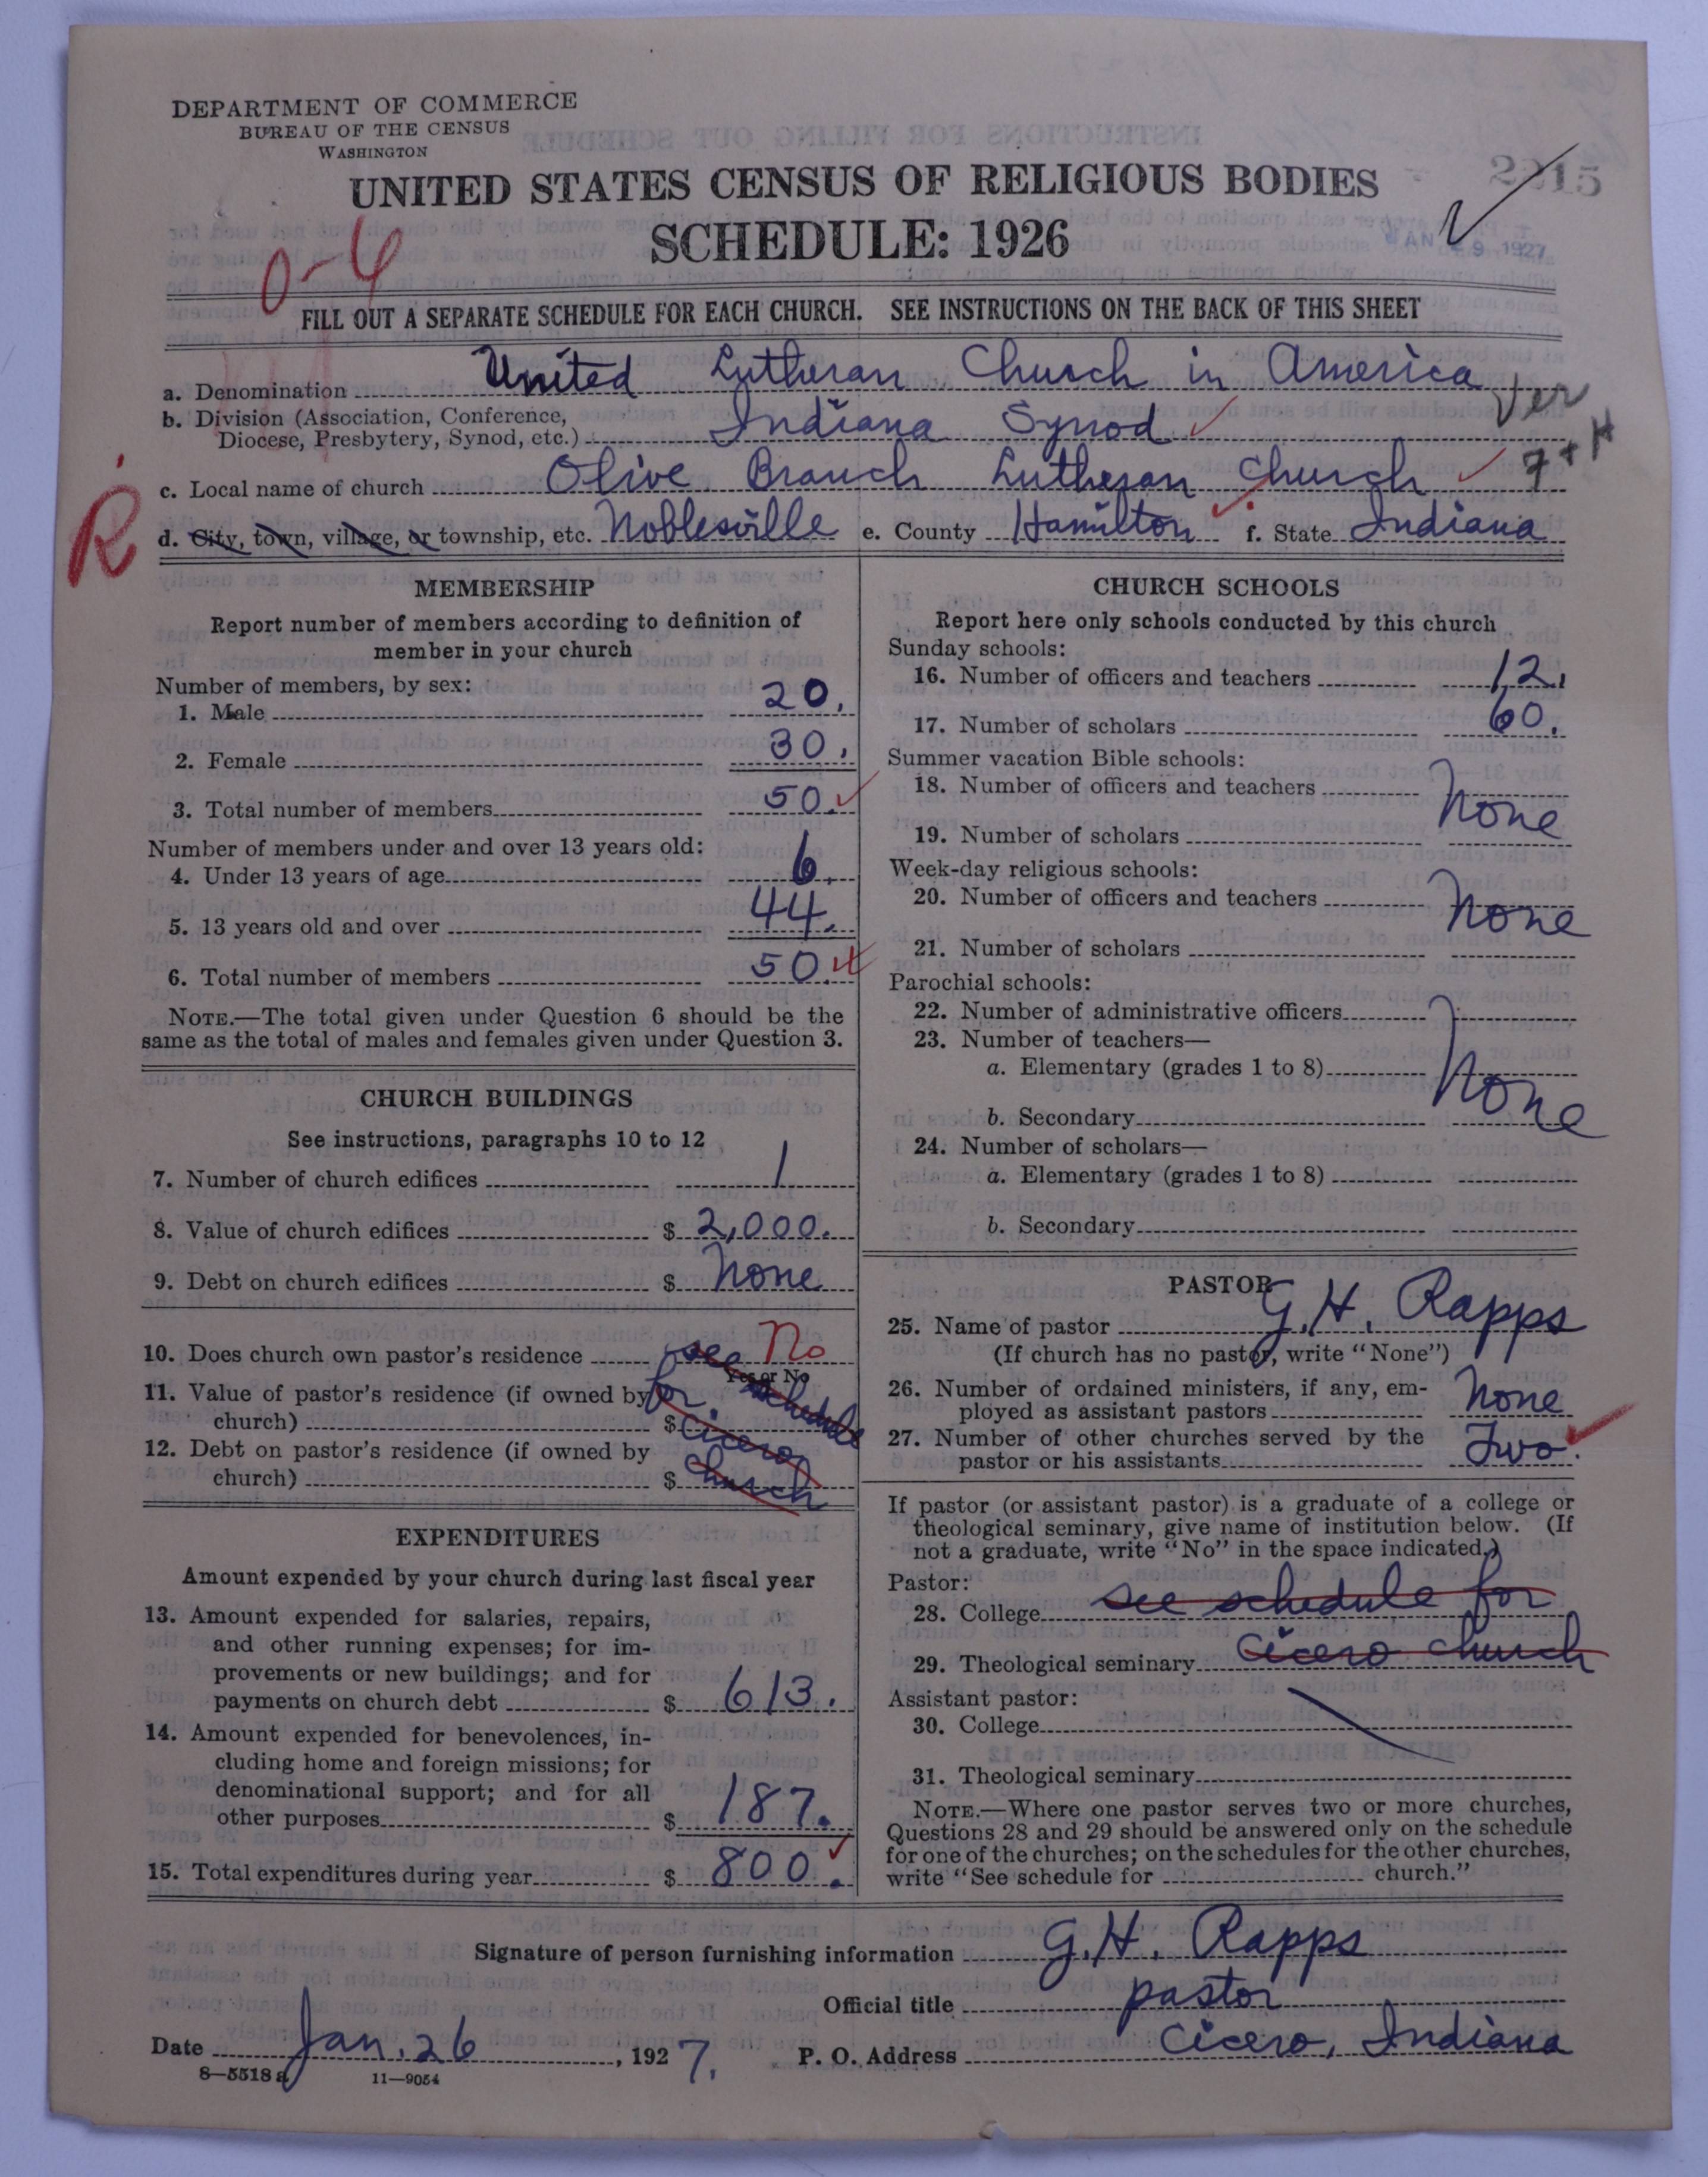 DEPARTMENT OF COMMERCE
BUREAU OF THE CENSUS
WASHINGTON
UNITED STATES CENSUS OF RELIGIOUS BODIES
SCHEDULE: 1926
JAN 29 1927
0-4
FILL OUT A SEPARATE SCHEDULE FOR EACH CHURCH. SEE INSTRUCTIONS ON THE BACK OF THIS SHEET
a. Denomination United Lutheran Church in America
Ver
b. Division (Association, Conference,
Diocese, Presbytery, Synod, etc.) Indiana Synod
7+H
c. Local name of church Olive Branch Lutheran Church
R
d. City, town, village, or township, etc. Noblesville e. County Hamilton f. State Indiana
MEMBERSHIP
Report number of members according to definition of
member in your church
Number of members, by sex:
1. Male 20.
2. Female 30.
3. Total number of members 50.
Number of members under and over 13 years old:
4. Under 13 years of age 6.
5. 13 years old and over 44.
6. Total number of members 50.
NOTE.—The total given under Question 6 should be the
same as the total of males and females given under Question 3.
CHURCH BUILDINGS
See instructions, paragraphs 10 to 12
7. Number of church edifices 1
8. Value of church edifices $ 2,000.
9. Debt on church edifices $ None
10. Does church own pastor's residence see No
Yes or No
11. Value of pastor's residence (if owned by for schedule
church) $ Cicero
12. Debt on pastor's residence (if owned by
church) $ church
EXPENDITURES
Amount expended by your church during last fiscal year
13. Amount expended for salaries, repairs,
and other running expenses; for im-
provements or new buildings; and for
payments on church debt $ 613.
14. Amount expended for benevolences, in-
cluding home and foreign missions; for
denominational support; and for all
other purposes $ 187.
15. Total expenditures during year $ 800.
CHURCH SCHOOLS
Report here only schools conducted by this church
Sunday schools:
16. Number of officers and teachers 12.
17. Number of scholars 60.
Summer vacation Bible schools:
18. Number of officers and teachers
None
19. Number of scholars
Week-day religious schools:
20. Number of officers and teachers None
21. Number of scholars
Parochial schools:
22. Number of administrative officers
23. Number of teachers—
a. Elementary (grades 1 to 8) None
b. Secondary
24. Number of scholars—
a. Elementary (grades 1 to 8)
b. Secondary
PASTOR
25. Name of pastor G. H. Rapps
(If church has no pastor, write "None")
26. Number of ordained ministers, if any, em-
ployed as assistant pastors None
27. Number of other churches served by the
pastor or his assistants Two.
If pastor (or assistant pastor) is a graduate of a college or
theological seminary, give name of institution below. (If
not a graduate, write "No" in the space indicated.)
Pastor:
28. College see schedule for
29. Theological seminary Cicero church
Assistant pastor:
30. College
31. Theological seminary
NOTE.—Where one pastor serves two or more churches,
Questions 28 and 29 should be answered only on the schedule
for one of the churches; on the schedules for the other churches,
write "See schedule for church."
Signature of person furnishing information G. H. Rapps
Official title pastor
Date Jan. 26, 1927. P. O. Address Cicero, Indiana
8—5518 a 11—9054